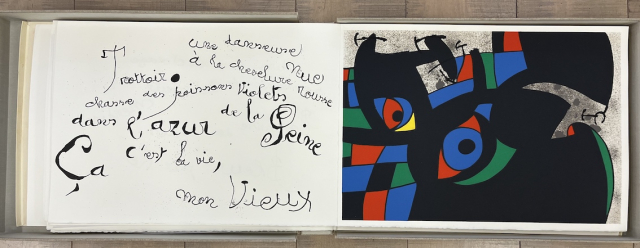 une danseuse nue
à la chevelure rousse
Trottoir.
chasse des poissons violets
dans l'azur de la Peine
Ça c'est la vie,
mon Vieux